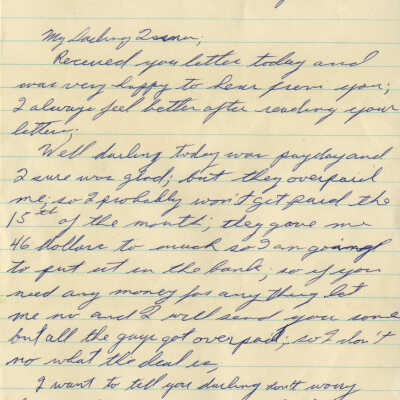 My Darling
Received you letter today and
was very happy to hear from you;
I always feel better after reading your
letters;
Well darling today was payday and
I sure was glad; but they overpaid
me; so I probably won't get paid the
15th of the month; they gave me
46 dollars to much so I an going
to put it in the bank; so if you
need any money for any thing let
me no and I will send you some
but all the guys got overpaid; so I don't
no what the deal is,
I want to tell you darling don't worry